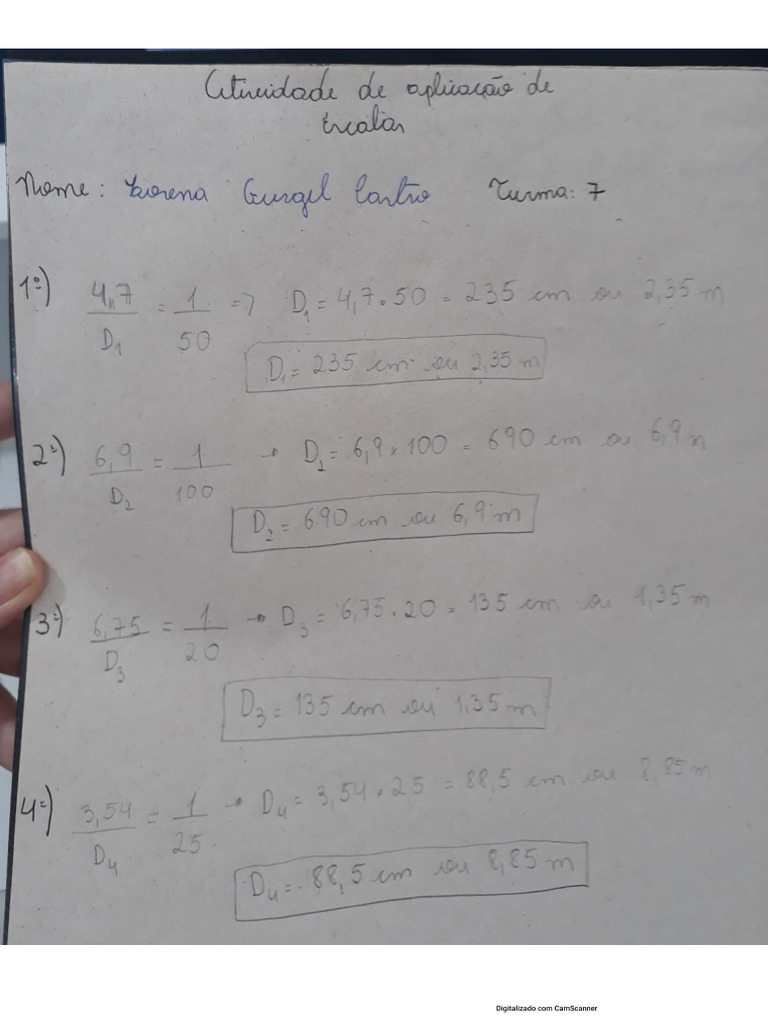 Atividade de aplicação de
Escalas
Nome: Lorena Gurgel Castro Turma: 7
1º) 4,7/D₁ = 1/50 => D₁ = 4,7 . 50 = 235 cm ou 2,35 m
D₁ = 235 cm ou 2,35 m
2º) 6,9/D₂ = 1/100 → D₂ = 6,9 x 100 = 690 cm ou 6,9 m
D₂ = 690 cm ou 6,9 m
3º) 6,75/D₃ = 1/20 → D₃ = 6,75 . 20 = 135 cm ou 1,35 m
D₃ = 135 cm ou 1,35 m
4º) 3,54/D₄ = 1/25 → D₄ = 3,54 . 25 = 88,5 cm ou 8,85 m
D₄ = 88,5 cm ou 8,85 m
Digitalizado com CamScanner